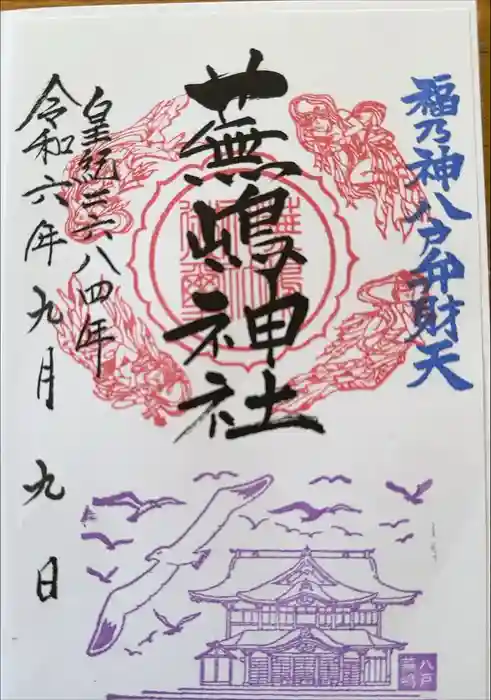 福乃神八戸弁財天
蕪嶋神社
皇紀二六八四年
令和六年九月九日
八戸
蕪嶋